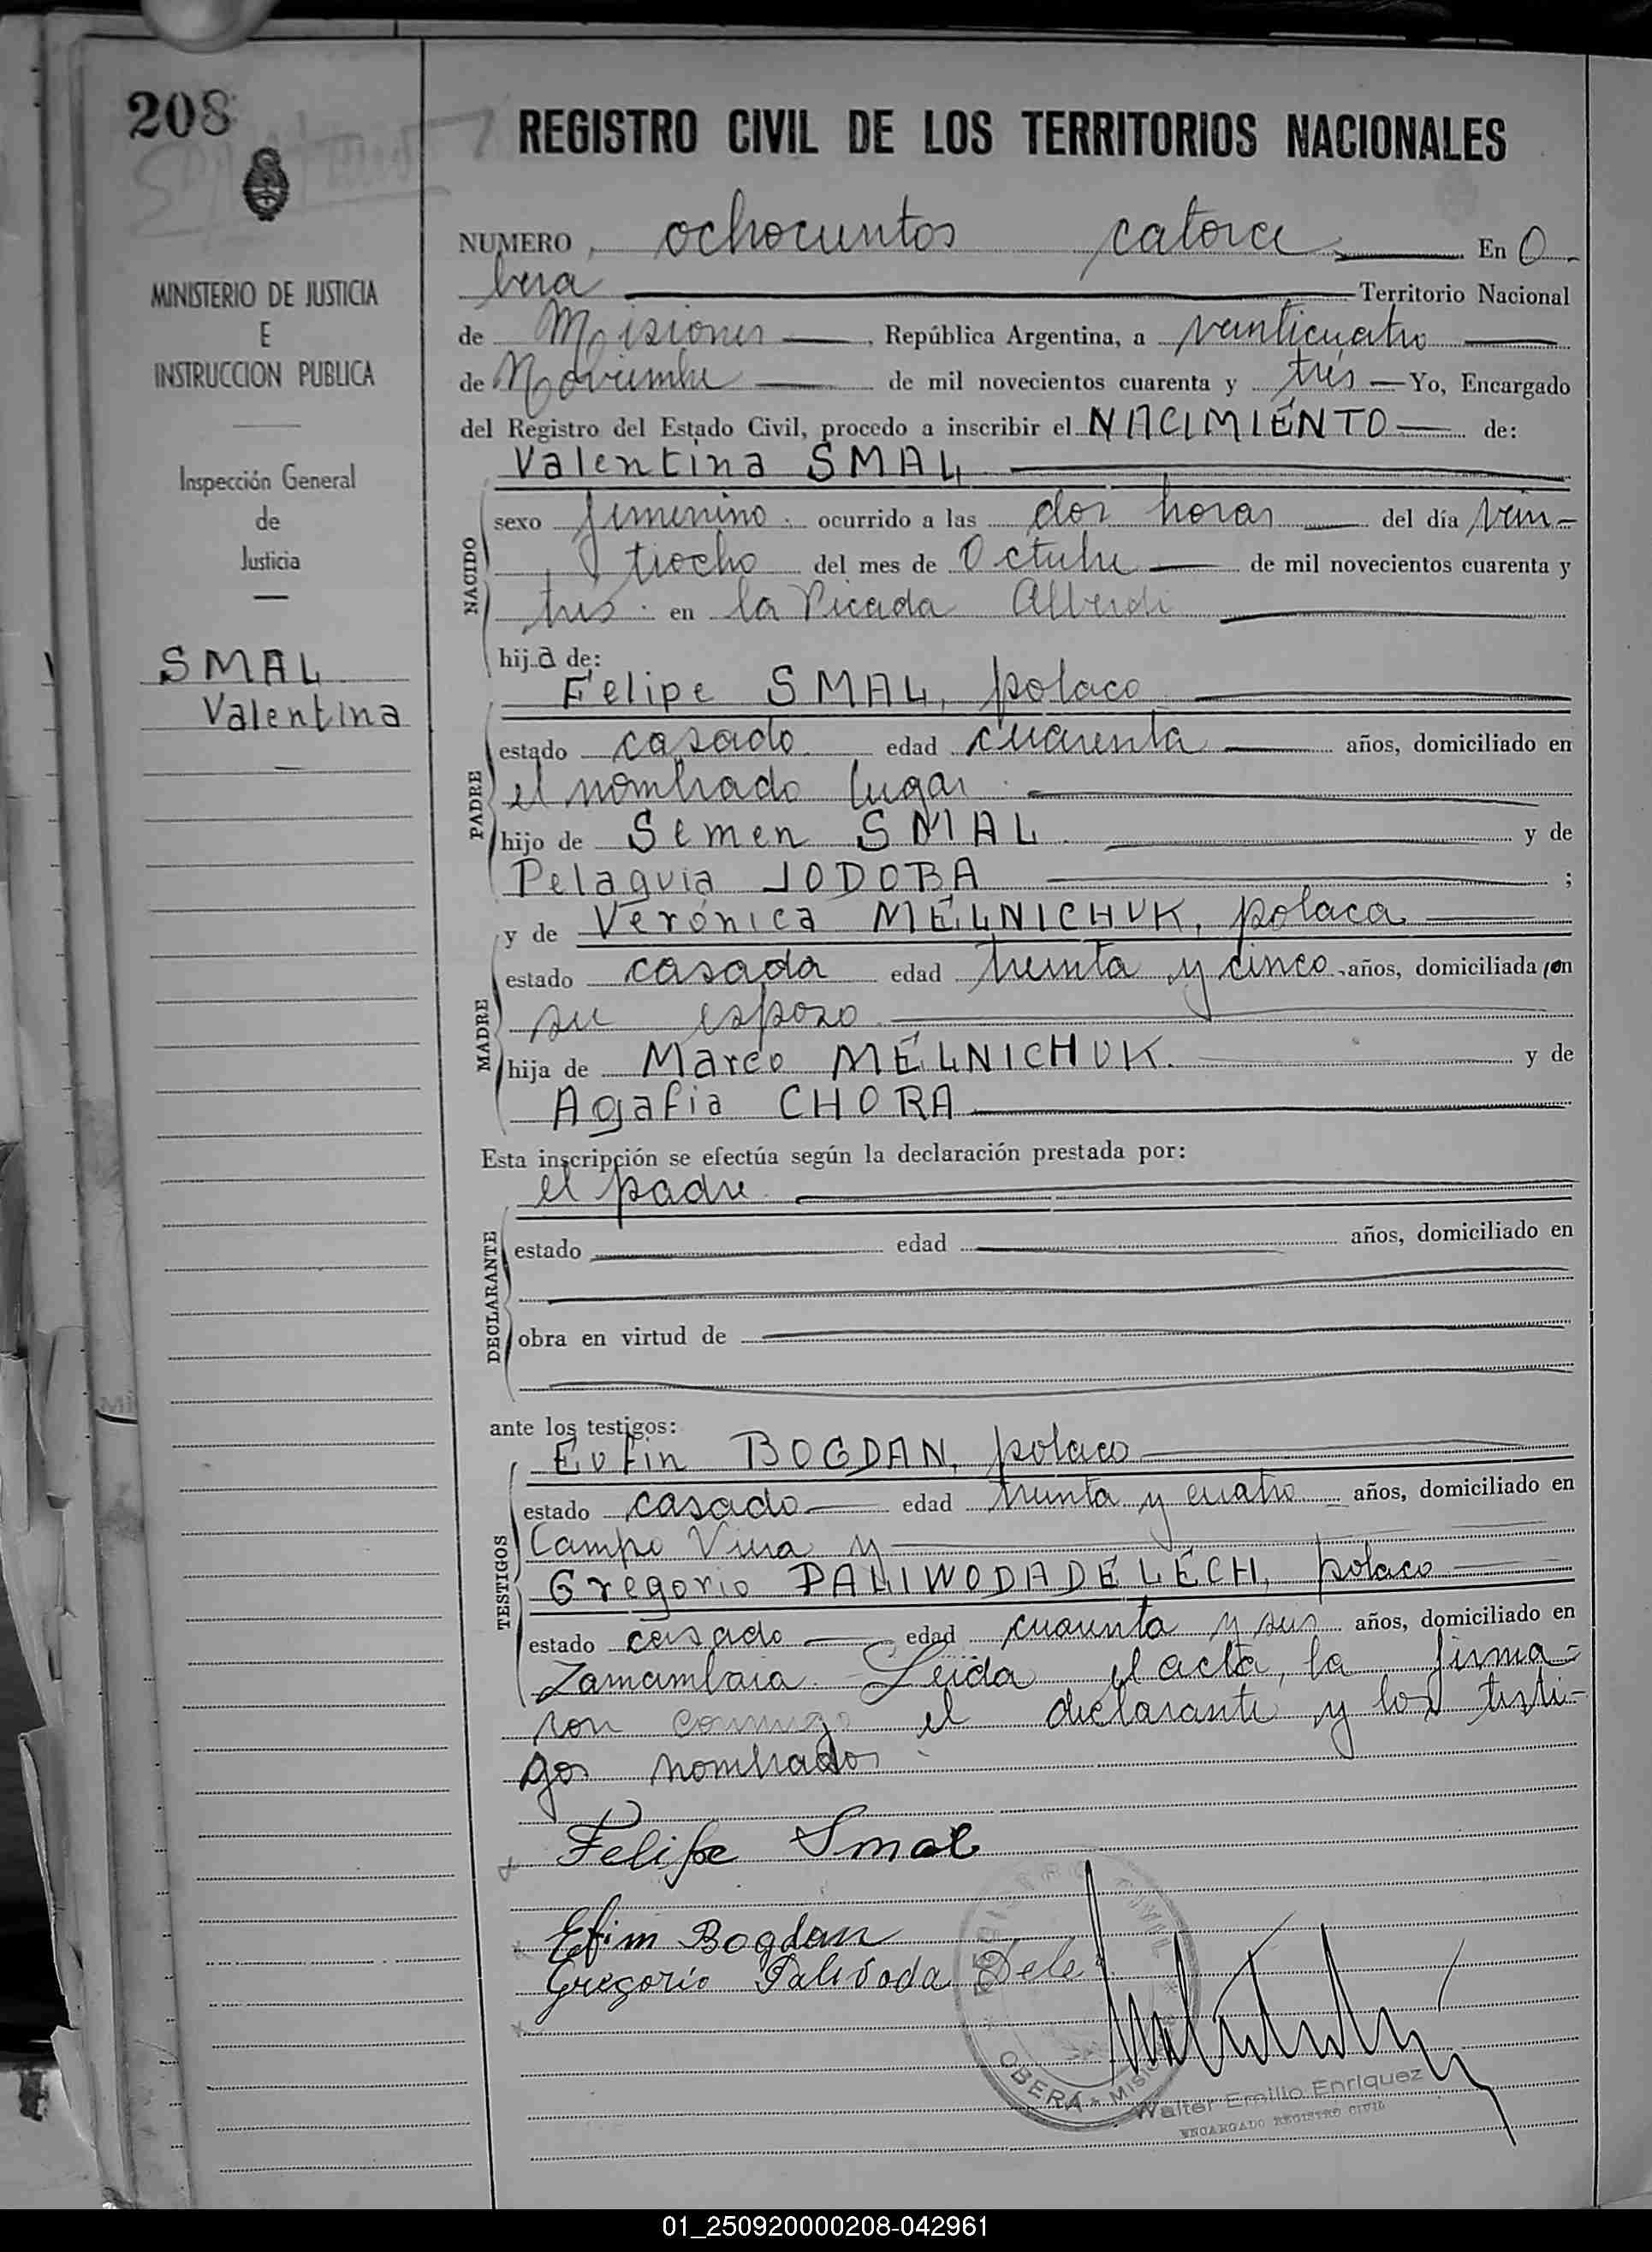 208
REGISTRO CIVIL DE LOS TERRITORIOS NACIONALES
MINISTERIO DE JUSTICIA
E
INSTRUCCION PUBLICA
Inspección General
de
Justicia
SMAL
Valentina
NUMERO ochocientos catorce En O
bera Territorio Nacional
de Misiones , República Argentina, a veinticuatro
de Noviembre de mil novecientos cuarenta y tres Yo, Encargado
del Registro del Estado Civil, procedo a inscribir el NACIMIENTO de:
Valentina SMAL
NACIDO
sexo femenino. ocurrido a las dos horas del día vein-
tiocho del mes de Octubre de mil novecientos cuarenta y
tres. en la Picada Alberdi
hija de:
Felipe SMAL, polaco
PADRE
estado casado. edad cuarenta años, domiciliado en
el nombrado lugar.
hijo de Semen SMAL. y de
Pelaguia JODOBA ;
y de Verónica MELNICHUK, polaca
MADRE
estado casada edad treinta y cinco años, domiciliada con
su esposo
hija de Marco MELNICHUK. y de
Agafia CHORA
Esta inscripción se efectúa según la declaración prestada por:
el padre
DECLARANTE
estado edad años, domiciliado en
obra en virtud de
ante los testigos:
Eufin BOGDAN, polaco
TESTIGOS
estado casado edad treinta y cuatro años, domiciliado en
Campo Viera y
Gregorio PALIWODADELECH, polaco
estado casado edad cuarenta y seis años, domiciliado en
Zamambaia. Leida el acta, la firma-
ron conmigo el declarante y los testi-
gos nombrados.
Felipe Smal
Efim Bogdan
Gregorio Palivoda Dele
REGISTRO CIVIL
OBERÁ - MISIONES
Walter Emilio Enriquez
ENCARGADO REGISTRO CIVIL
01_250920000208-042961